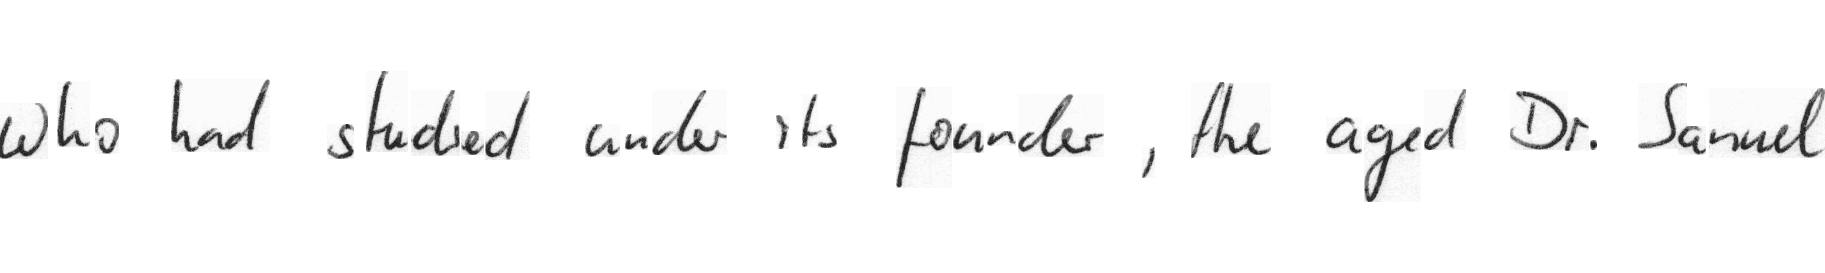 who had studied under its founder, the aged Dr. Samuel